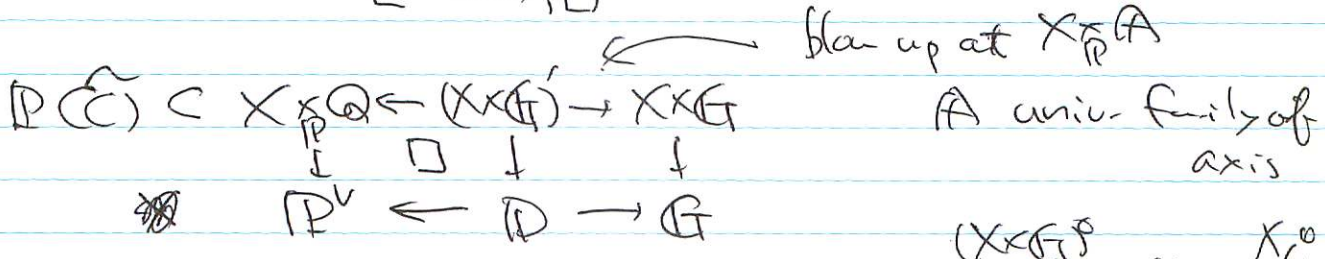 blow up at X×_ℙ 𝔸
ℙ(C̃) ⊂ X×_ℙ Q ← (X×𝔾)′ → X×𝔾
𝔸 univ. family of
axis
↓ □ ↓ ↓
ℙ^∨ ← 𝔻 → 𝔾
(X×𝔾)° X₁°